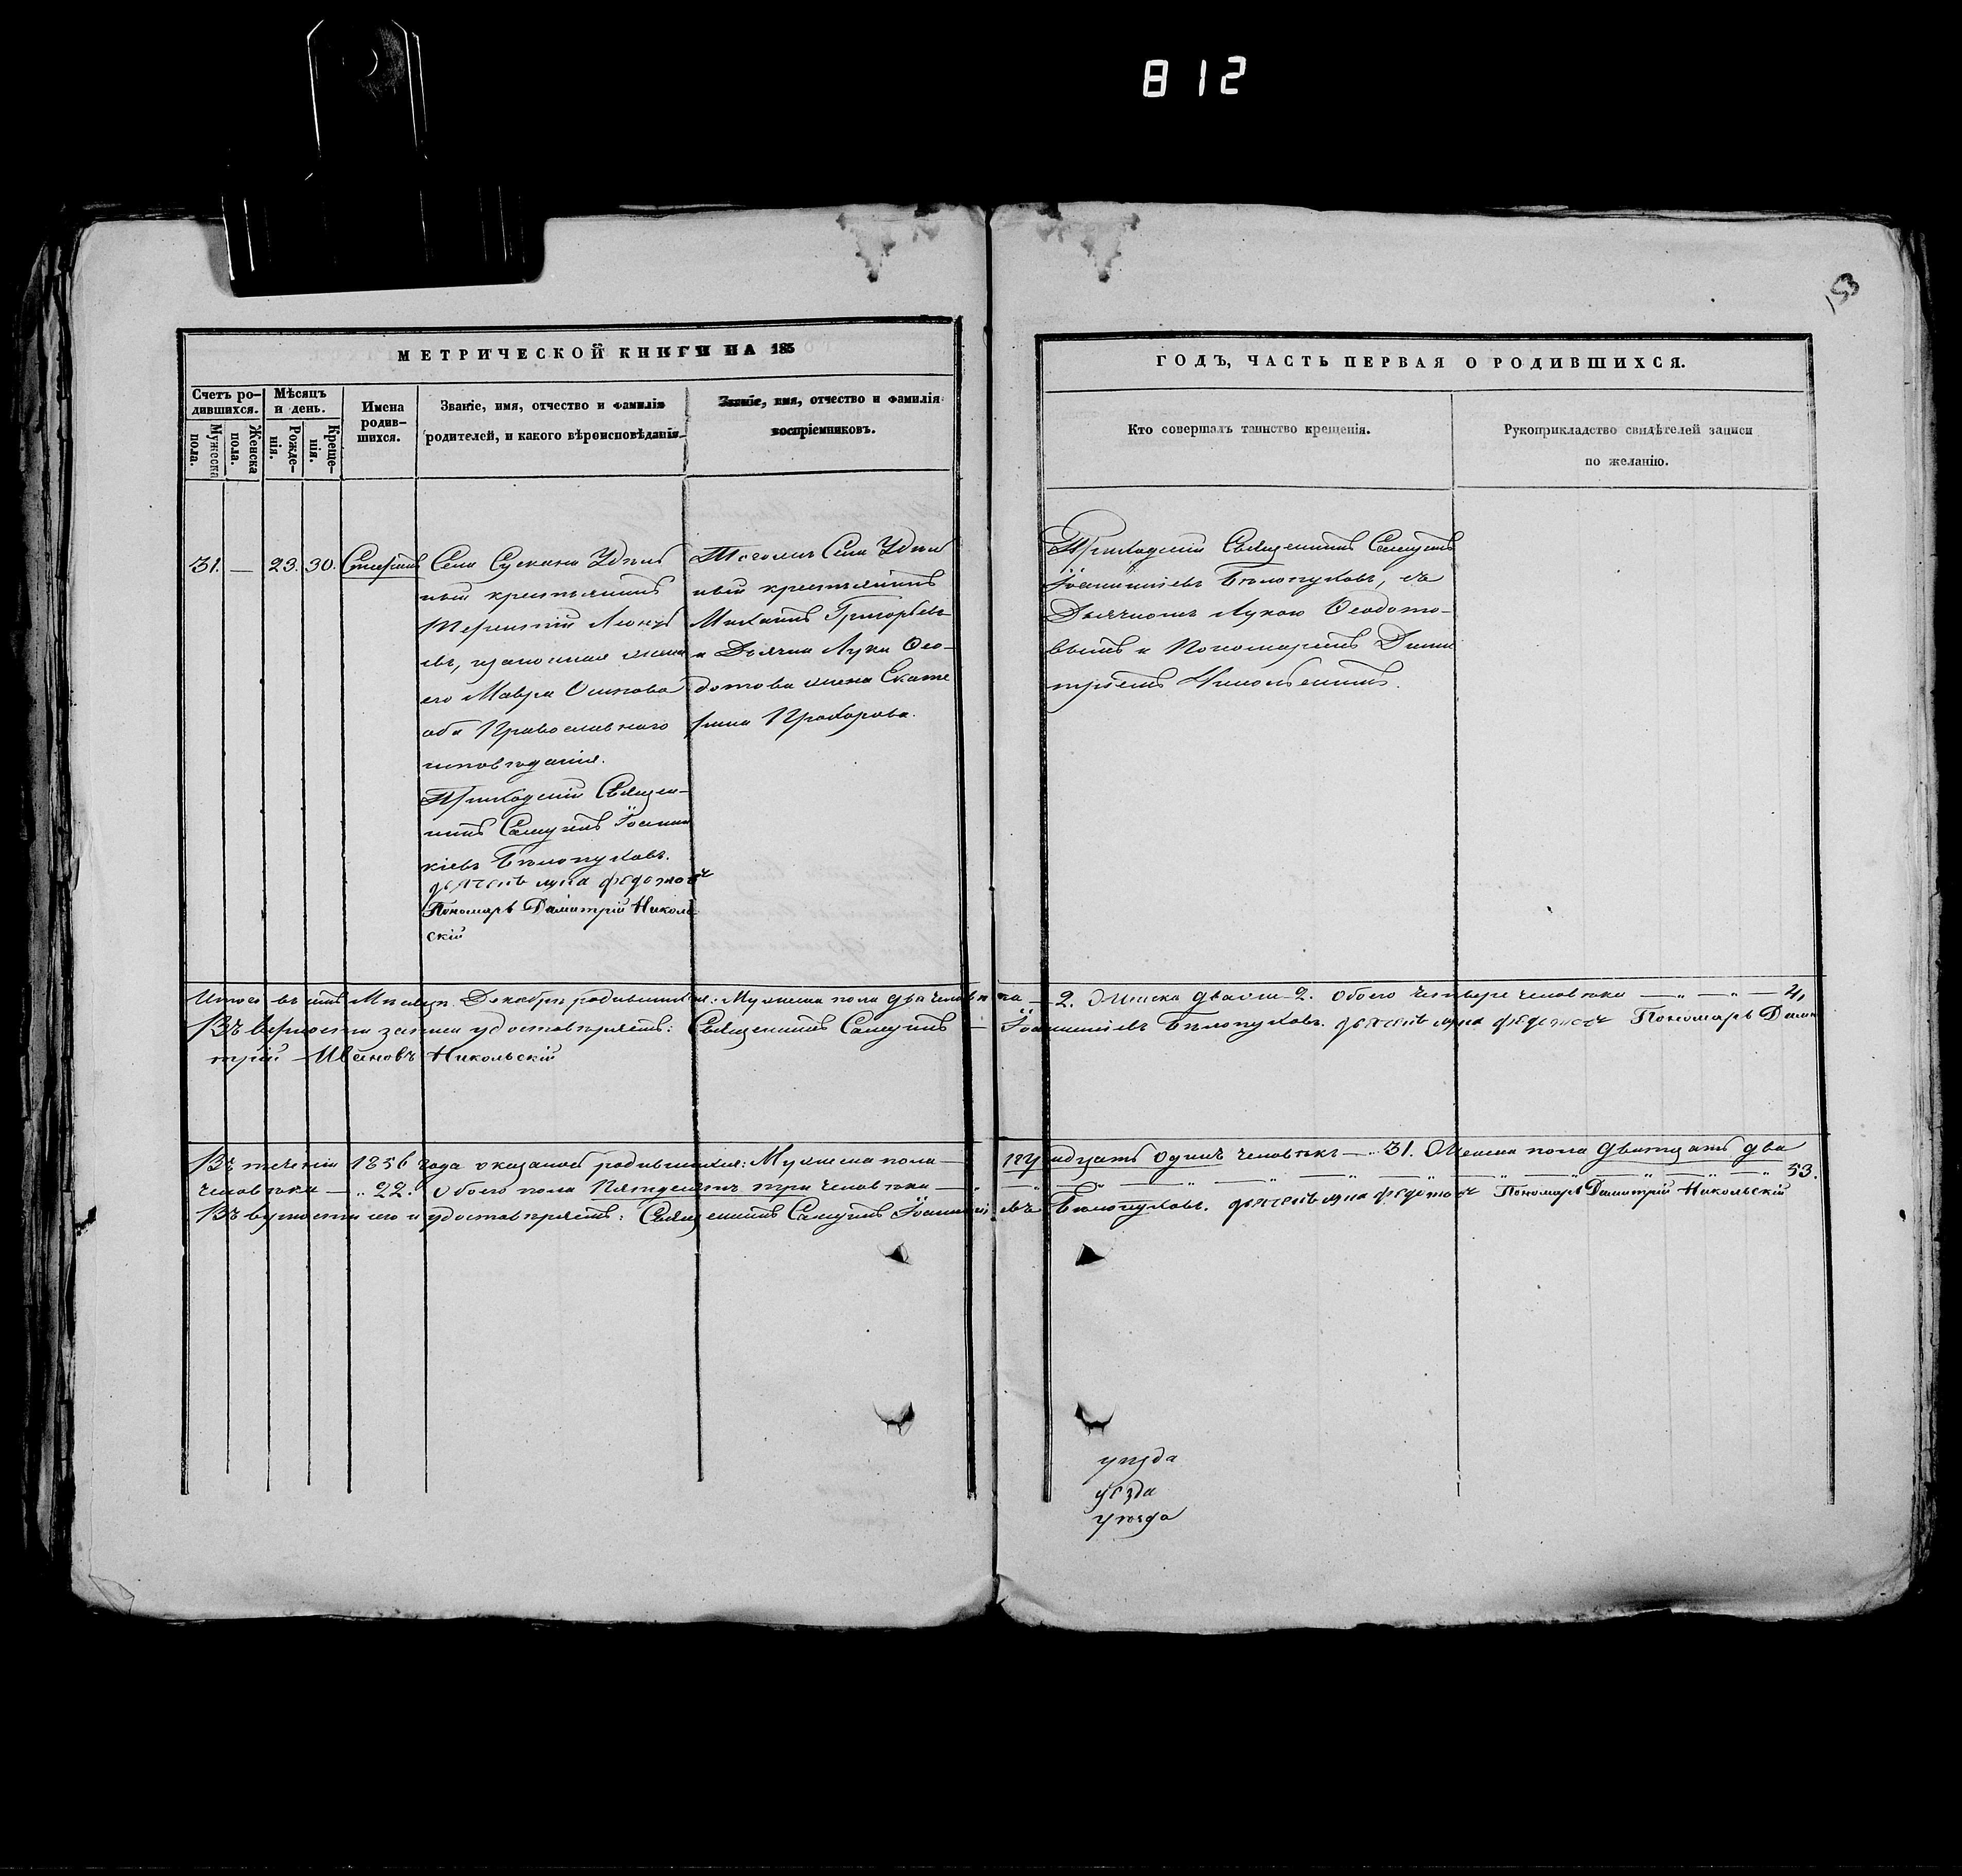 812
153
МЕТРИЧЕСКОЙ КНИГИ НА 185
ГОДЪ, ЧАСТЬ ПЕРВАЯ О РОДИВШИХСЯ.
Счетъ ро-
дившихся.
Мужеска
пола.
Женска
пола.
Мѣсяцъ
и день.
Рожде-
нія.
Креще-
нія.
Имена
родив-
шихся.
Званіе, имя, отчество и фамилія
родителей, и какого вѣроисповѣданія.
Званіе, имя, отчество и фамилія
воспріемниковъ.
Кто совершалъ таинство крещенія.
Рукоприкладство свидѣтелей записи
по желанію.
31. — 23. 30.
Села Сускана Удѣль
ный крестьянинъ
Терентій Леонть
евъ, законная жена
его Мавра Осипова
оба Православнаго
исповѣданія.
Приходскій Священ-
никъ Самуилъ Іоанни
кіевъ Бѣлопуховъ.
дьячекъ лука федотовъ
Пономарь Димитрій Николь
скій
Тогожъ Села Удѣль
ный крестьянинъ
Михаилъ Григорьевъ
и Дьячка Луки Ѳео-
дотова жена Екате
рина Прохорова.
Приходскій Священникъ Самуилъ
Іоанникіевъ Бѣлопуховъ, съ
Дьячкомъ Лукою Ѳеодото-
вымъ и Пономаремъ Дими
тріемъ Никольскимъ.
Итого въ Мѣсяцѣ Декабрѣ родившихся: Мужеска пола два человѣка — 2. Женска двоихъ 2. Обоего четверо человѣка — „ — „ — 4,
Въ вѣрности записи удостовѣряемъ: Священникъ Самуилъ — Іоанникіевъ Бѣлопуховъ. дьячекъ лука федотовъ Пономарь Дими
трій Ивановъ Никольскій
Въ теченіи 1856 года оказалось родившихся: Мужеска пола — тридцать одинъ человѣкъ — „ 31. Женска пола двадцать два
человѣка — „ 22. Обоего пола Пятдесятъ три человѣка — 53.
Въ вѣрности сего и удостовѣряемъ: Священникъ Самуилъ Іоанникіевъ Бѣлопуховъ. дьячекъ лука федотовъ Пономарь Димитрій Никольскій
уѣзда
уѣзда
уѣзда